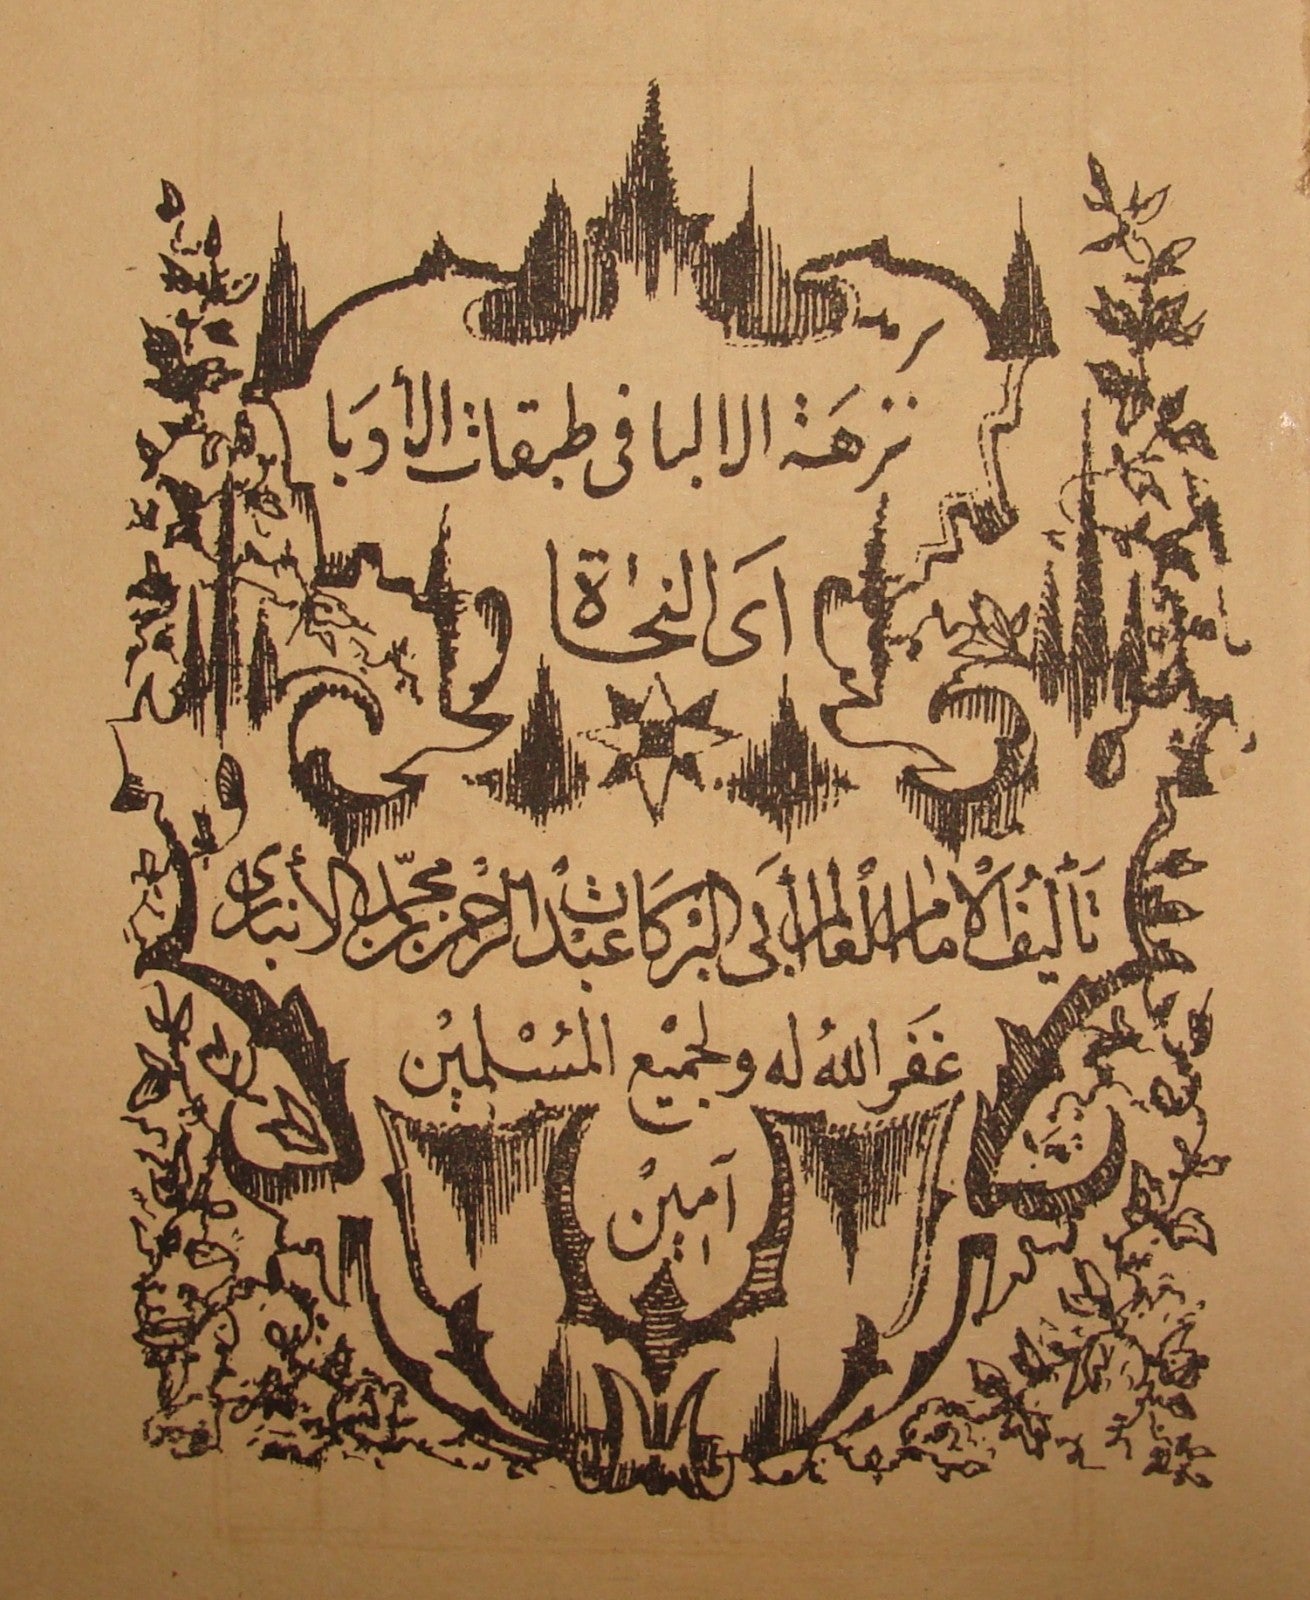 نزهة الالبا في طبقات الأدبا
اى النحاة
تأليف الامام العالم أبى البركات عبد الرحمن بن محمد الأنبارى
غفر الله له ولجميع المسلمين
آمين